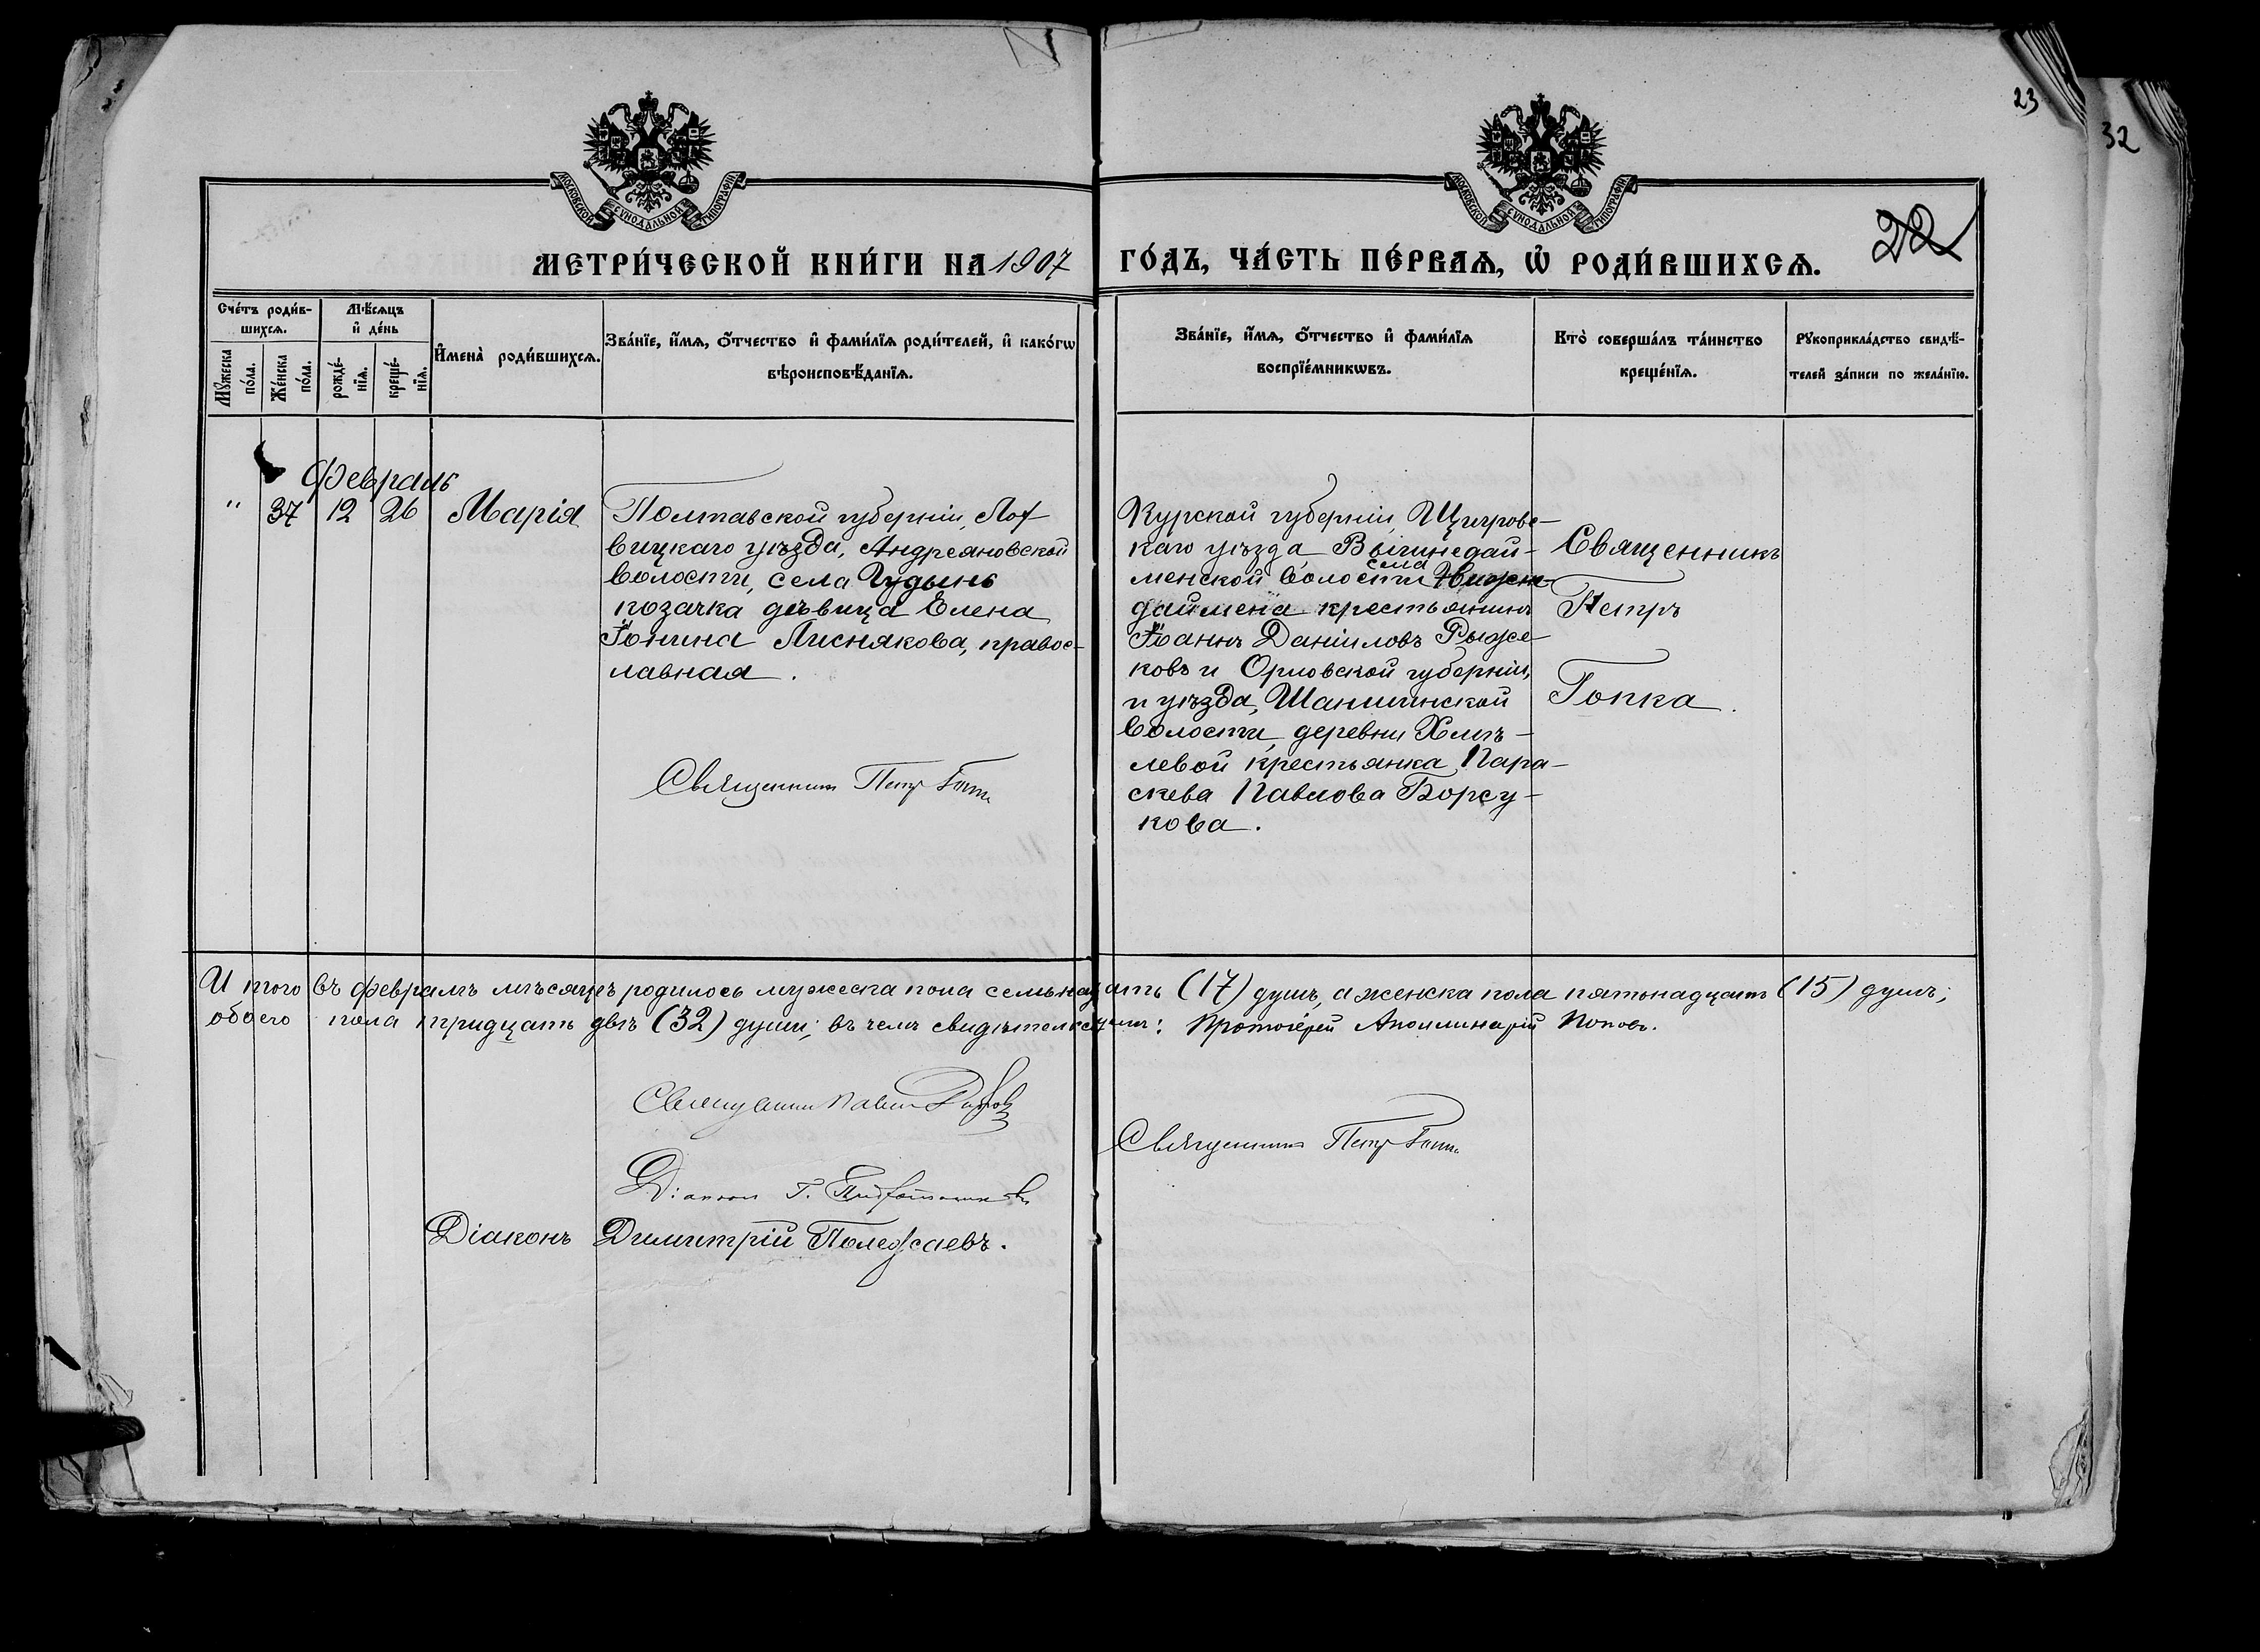 23
32
22
МОСКОВСКОЙ СѴНОДАЛЬНОЙ ТИПОГРАФІИ
МОСКОВСКОЙ СѴНОДАЛЬНОЙ ТИПОГРАФІИ
МЕТРИ́ЧЕСКОЙ КНИ́ГИ НА 1907
ГО́ДЪ, ЧА́СТЬ ПЕ́РВАѦ, Ѡ҆ РОДИ́ВШИХСѦ.
Сче́тъ роди́в-
шихсѧ.
Мꙋ́жеска
по́ла.
Же́нска
по́ла.
Мѣ́сѧцъ
и҆ де́нь
рожде́-
нїѧ.
креще́-
нїѧ.
И҆мена̀ роди́вшихсѧ.
Зва́нїе, и҆́мѧ, ѻ҆́тчество и҆ фами́лїѧ роди́телей, и҆ како́гѡ
вѣроисповѣ́данїѧ.
Зва́нїе, и҆́мѧ, ѻ҆́тчество и҆ фами́лїѧ
воспрїе́мникѡвъ.
Кто̀ соверша́лъ та́инство
креще́нїѧ.
Рꙋкоприкла́дство свидѣ́-
телей за́писи по жела́нїю.
Февраль
" 37 12 26 Марія
Полтавской губерніи, Лох-
вицкаго уѣзда, Андреяновской
волости, села Гудынь
козачка дѣвица Елена
Іонина Лиснякова, правос-
лавная.
Священникъ Петръ Гопка
Курской губерніи, Щигровс-
каго уѣзда,
менской волости села
даймена крестьянинъ
Іоаннъ Даніиловъ Рыже-
ковъ и Орловской губерніи,
и уѣзда, волости, деревни Хмѣ-
левой крестьянка Пара-
скева Павлова Борсу-
кова.
Священникъ
Петръ
Гопка.
И того въ февралѣ мѣсяцѣ родилось мужеска пола семьнадцать (17) душъ, а женска пола пятьнадцать (15) душъ;
обоего пола тридцать двѣ (32) души; въ чемъ свидѣтельствуемъ: Протоіерей Аполлинарій Поповъ.
Священникъ Павелъ
Священникъ Петръ Гопка
Діаконъ Г.
Діаконъ Димитрій Полежаевъ.